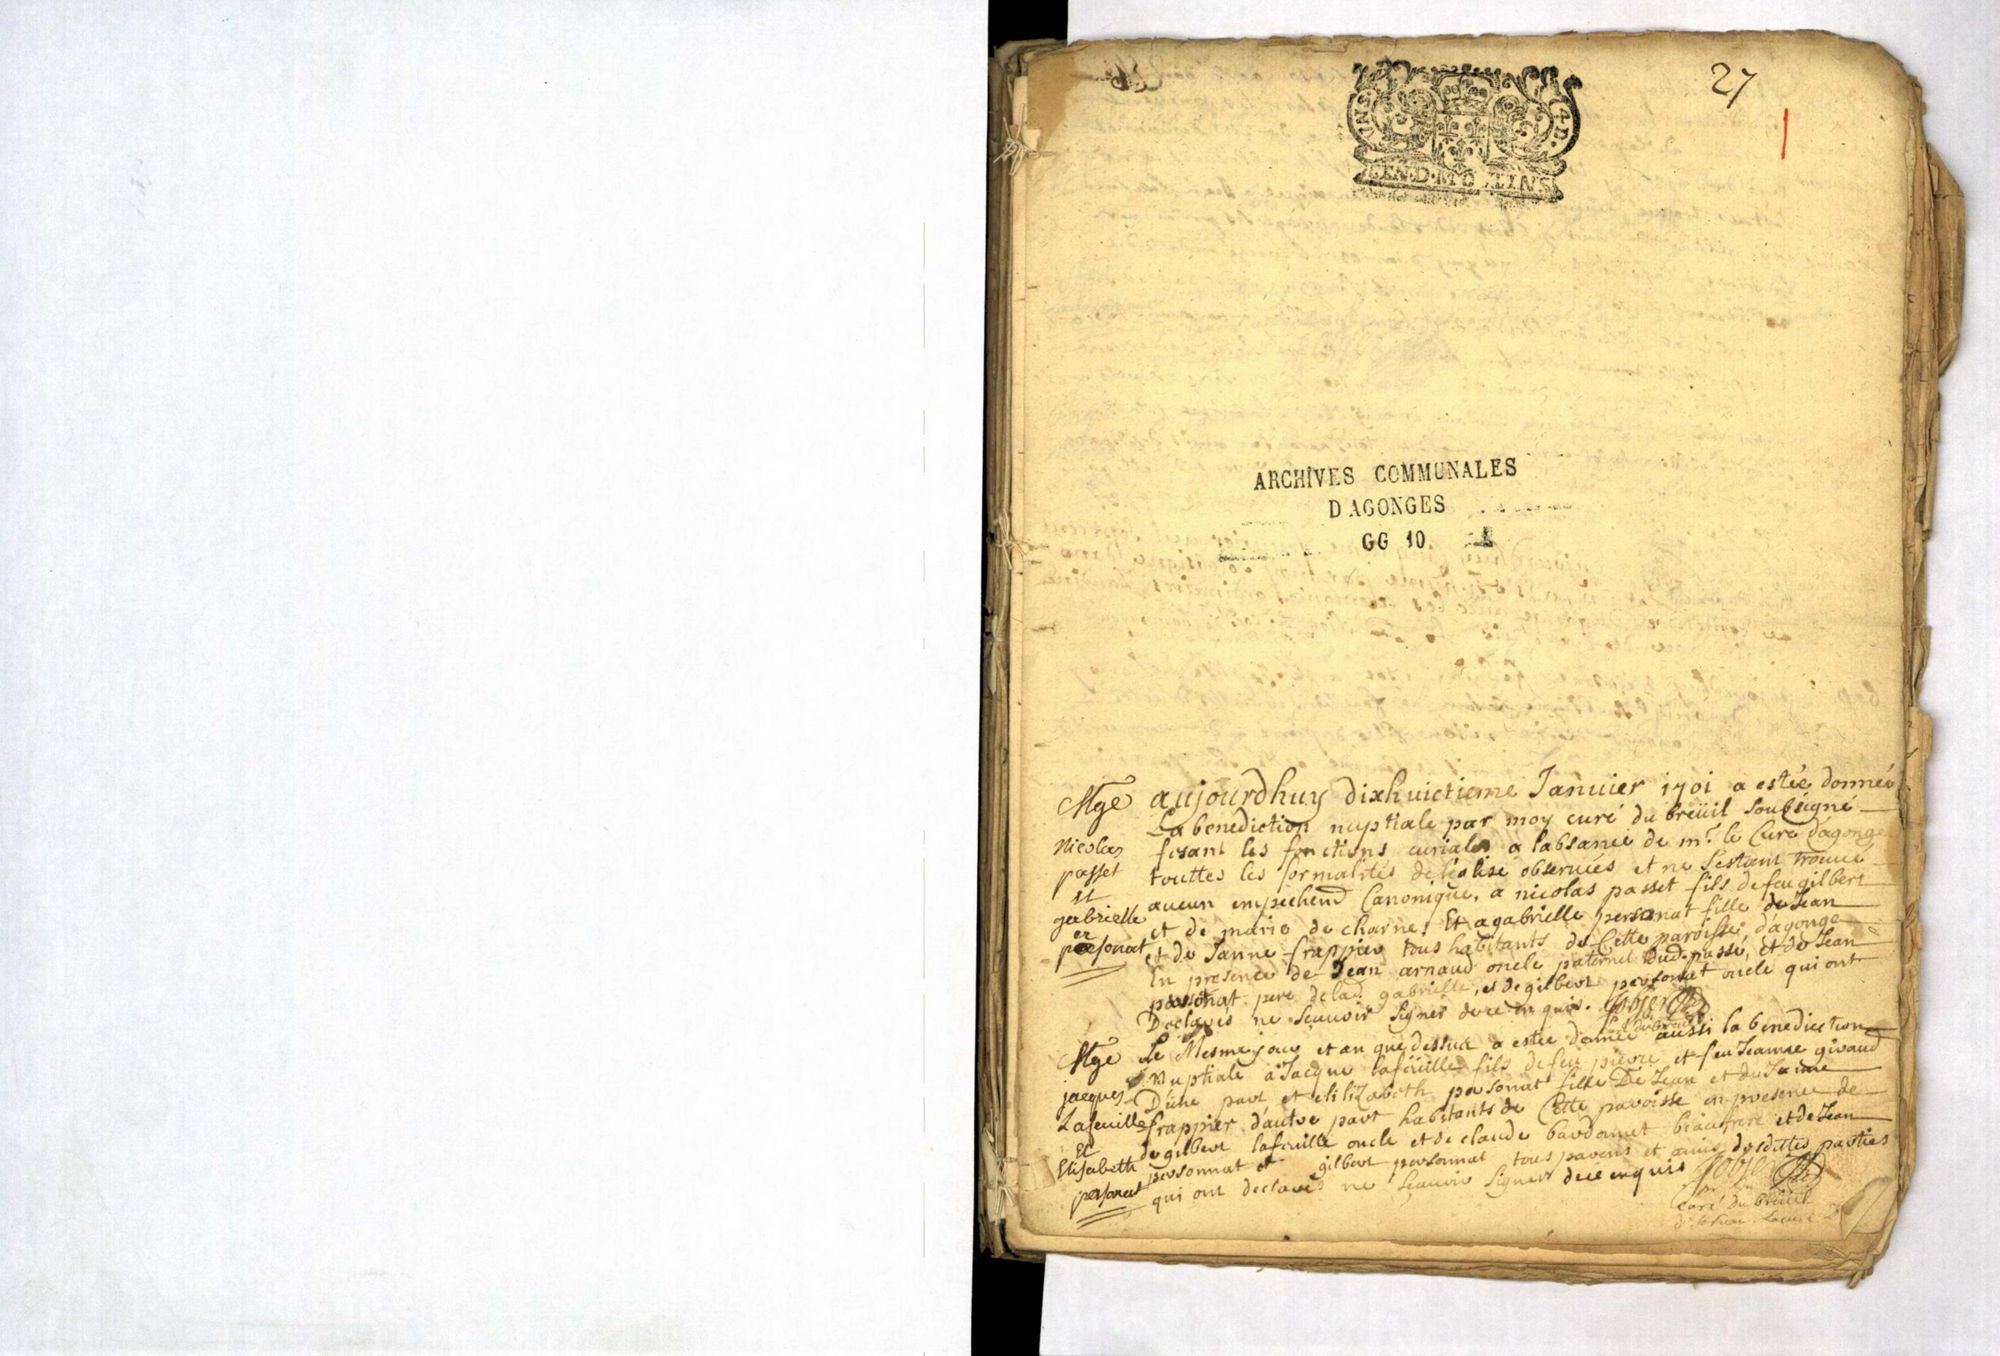 27
VNS 4D
GEN.D.MOLINS
ARCHIVES COMMUNALES
D'AGONGES
GG 10
Mge
Nicolas
passet
et
gabrielle
personat
aujourdhuy dixhuictieme Januier 1701 a estée donnée
La benediction nuptiale par moy curé du breüil soubsigné
fesant les fonctions curiales a labsance de mr. le Curé dagonge
touttes les formalités de léglise obseruées et ne sestant trouué
aucun empechemd Canonique, a nicolas passet fils de feu gilbert
et de marie de charne. Et a gabrielle personat fille de Jean
et de Janne frappier tous habitants de Cette paroisse d'agonge
En presence de Jean arnaud oncle paternel dud. passé, et de Jean
personat pere de lad. gabrielle, et de gilbert personat oncle qui ont
Declarés ne sçauoir signer de ce enquis.
Mge
jacques
Lafeuille
et
Elisabeth
personat
Le Mesme jour et an que dessus a estée donnée aussi la benediction
Nuptiale a Jacque lafeüille fils de feu pierre et feu Jeanne giraud
D'une part et elilizabeth personat fille De Jean et de Janne
frappier d'autre part habitants de Cette paroisse en presence de
de gilbert lafeuille oncle et de claude bardonnet beaufrere et de Jean
personnat et gilbert personnat tous parens et amis desdittes parties
qui ont declarés ne sçauoir signer de ce enquis
Curé du breüil